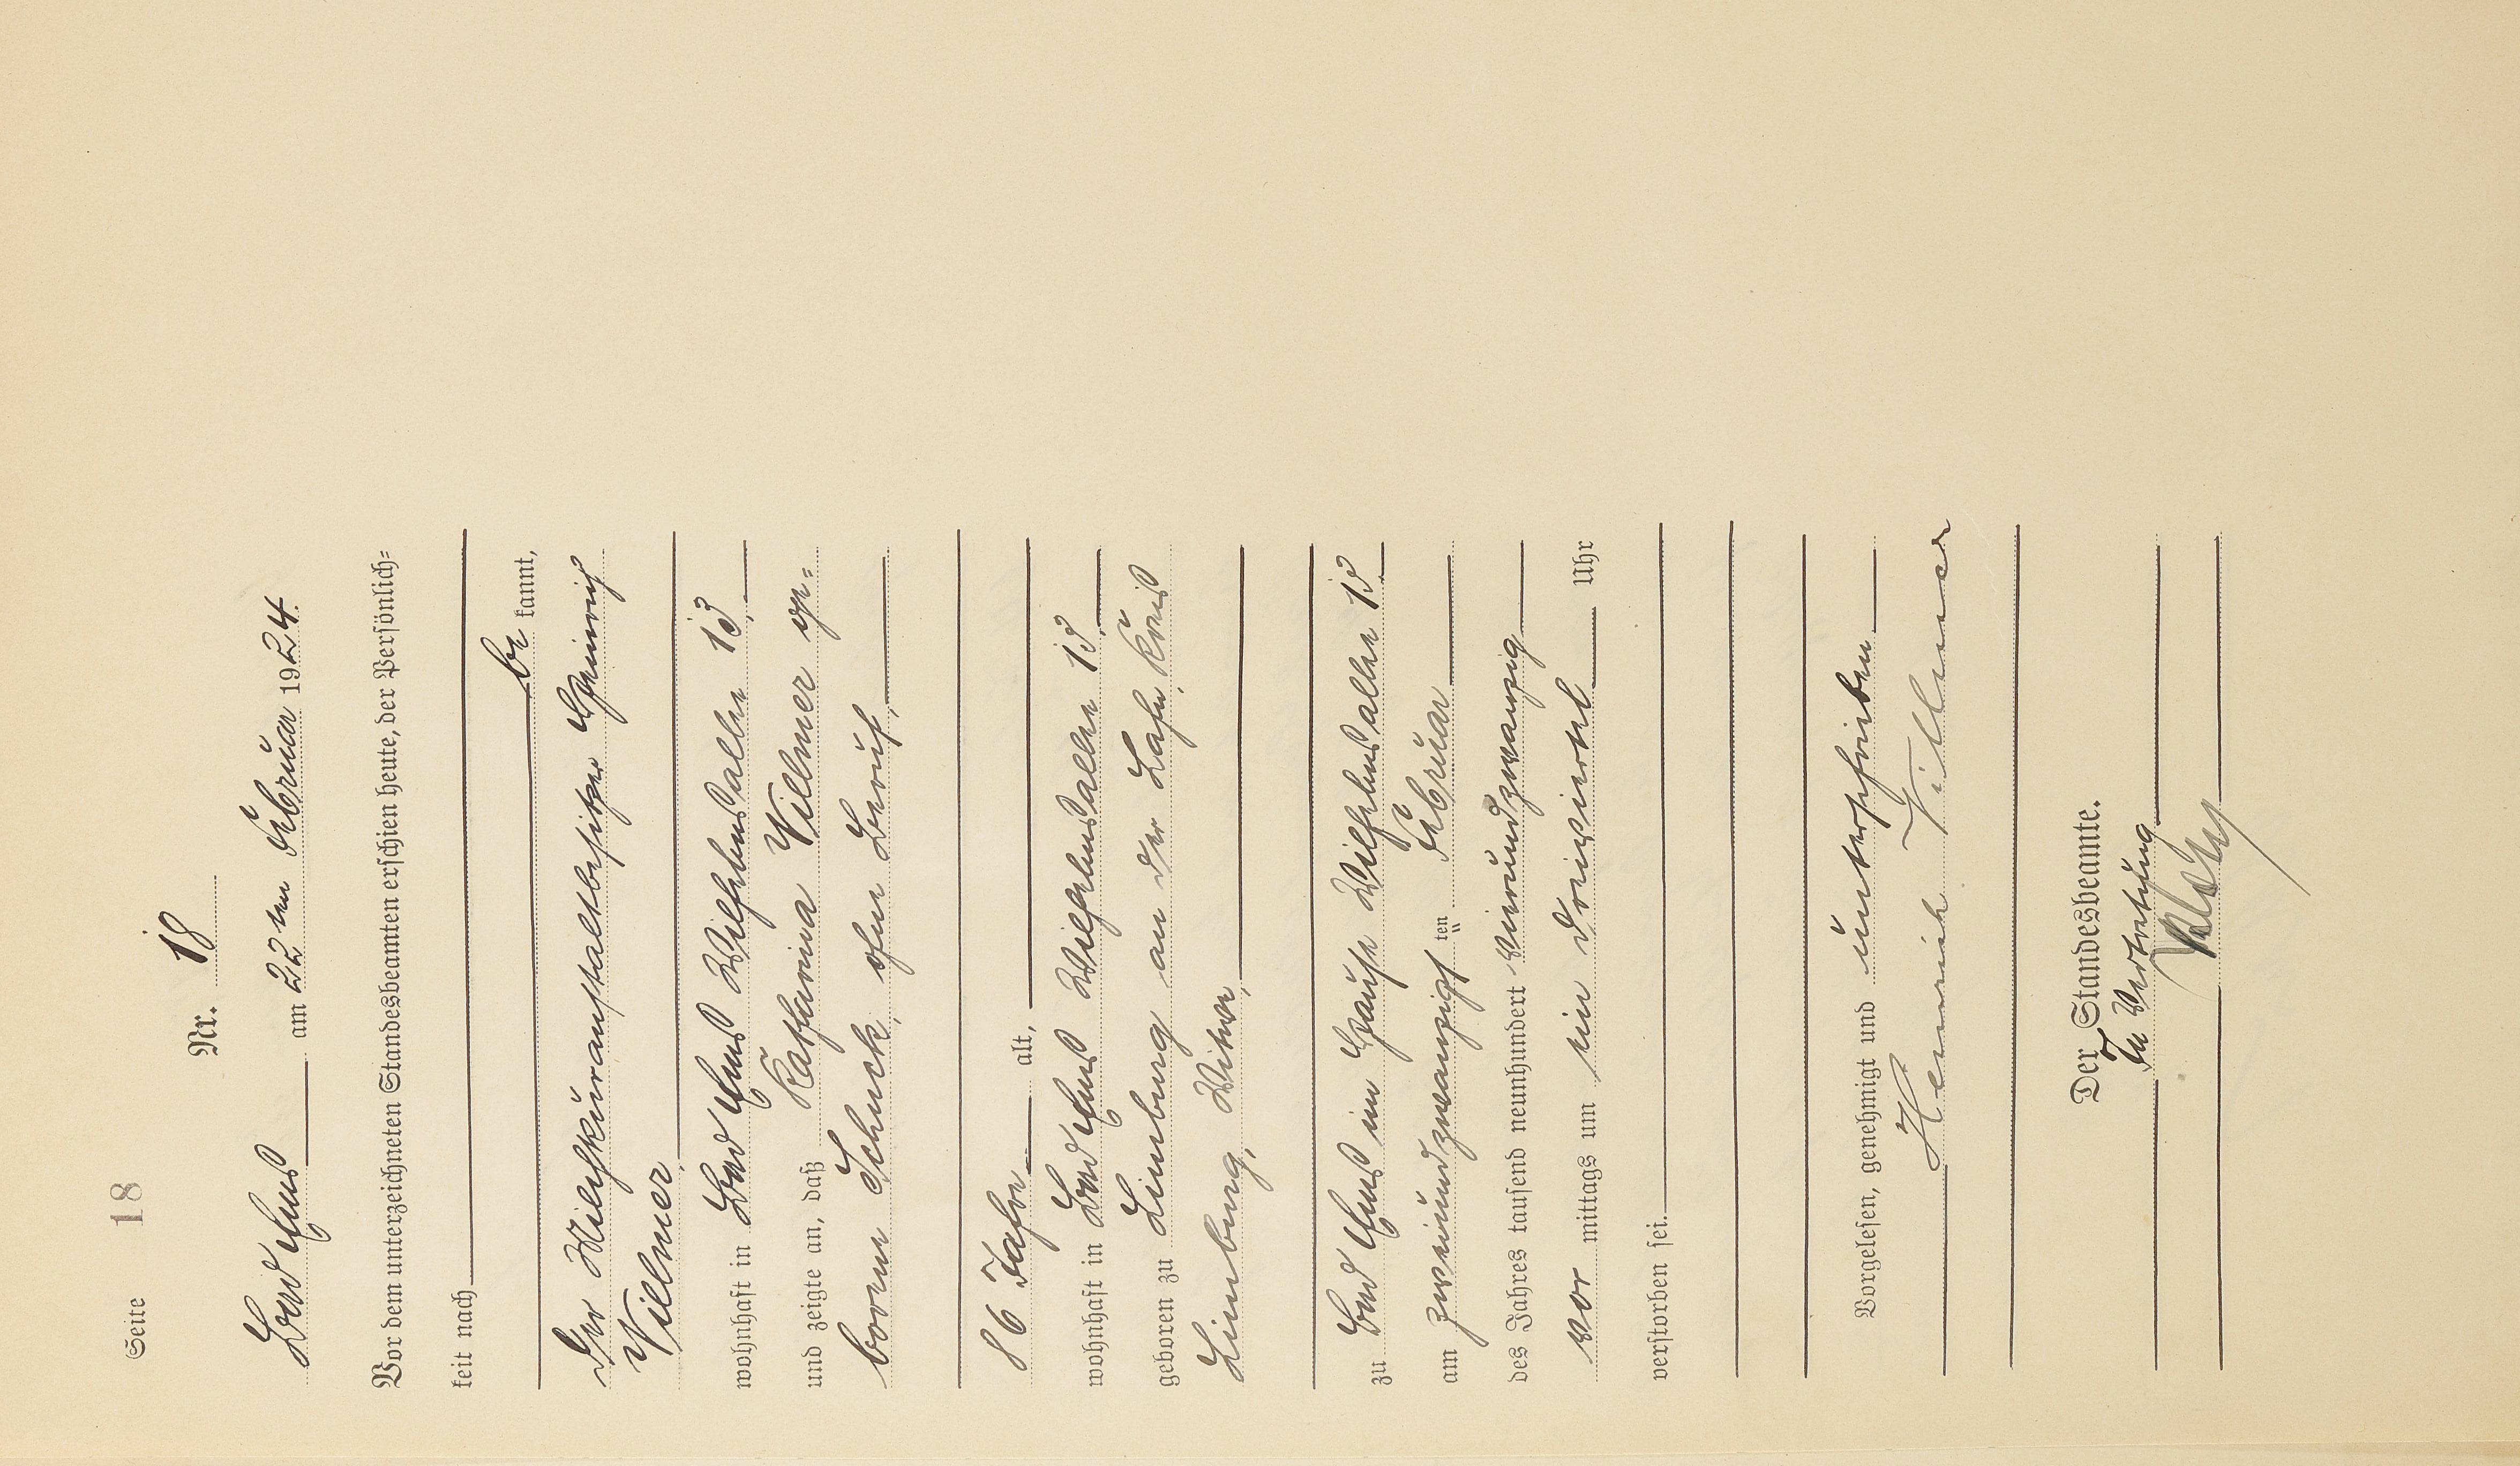 Seite 18
Nr. 18
Bad Ems am 22ten Februar 1924.
Vor dem unterzeichneten Standesbeamten erschien heute, der Persönlich=
keit nach
be kannt,
der Milchkuranstaltbesitzer Heinrich
Villmer,
wohnhaft in Bad Ems Wilhelmsallee 13,
und zeigte an, daß Katharina Villmer ge=
borene Schuck, ohne Beruf,
86 Jahre alt,
wohnhaft in Bad Ems Wilhelmsallee 13,
geboren zu Limburg an der Lahn, Kreis
Limburg, Witwe,
zu Bad Ems im Hause Wilhelmsallee 13
am zweiundzwanzigsten Februar
des Jahres tausend neunhundert vierundzwanzig
vor mittags um ein dreiviertel Uhr
verstorben sei.
Vorgelesen, genehmigt und unterschrieben.
Heinrich Villmer
Der Standesbeamte.
In Vertretung